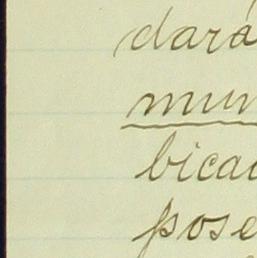 dará
mun
bica
pose